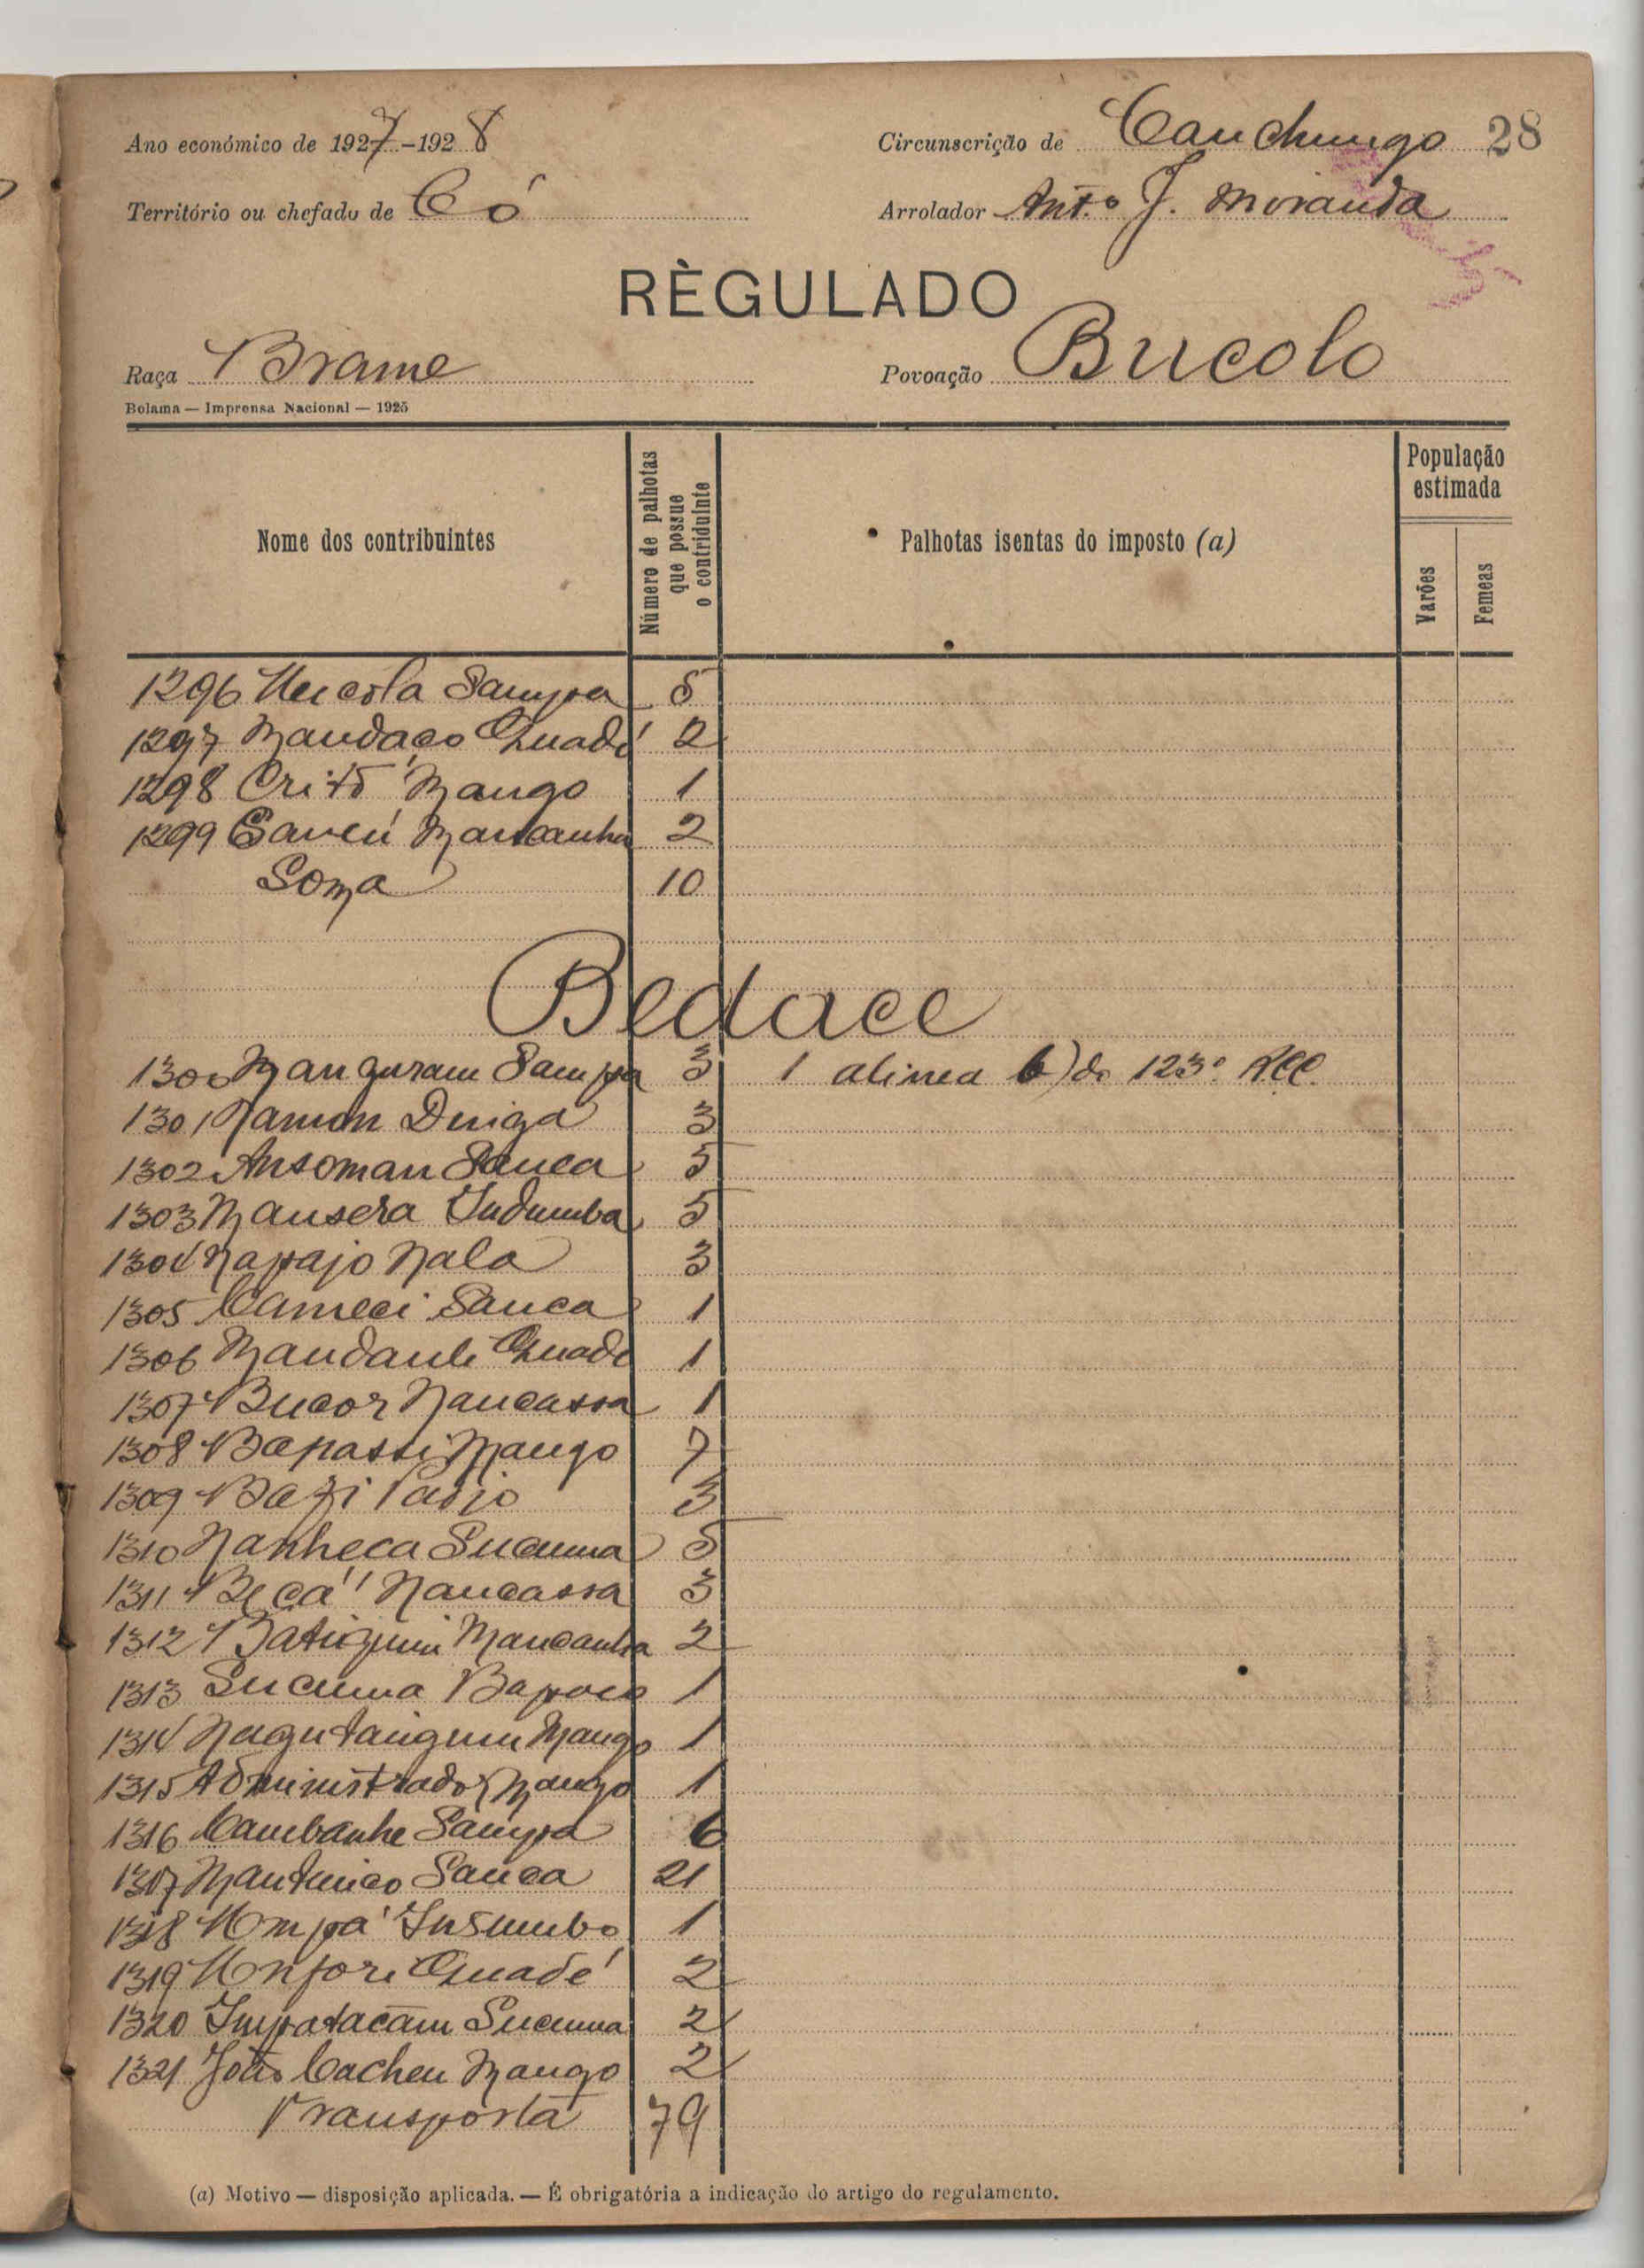 Ano económico de 1927-1928
Circunscrição de Canchungo 28
Território ou chefado de Có
Arrolador Ant.º J. Miranda
RÈGULADO
Raça Brame
Povoação Bucolo
Bolama — Imprensa Nacional — 1925
Nome dos contribuintes
Número de palhotas
que possue
o contriduinte
Palhotas isentas do imposto (a)
População
estimada
Varões
Femeas
1296 Sampa 5
1297 Mandaco Quadé 2
1298 Critó Mango 1
1299 Mancanha 2
Soma 10
Bedace
1300 Manguram Sampa 3 1 alinea b) do 123º RCC.
1301 Namon Duiga 3
1302 Ansoman Sanca 5
1303 Mansera Indumba 5
1304 Napajo Nala 3
1305 Cameci Sanca 1
1306 Mandaule Quadé 1
1307 Bucor Nancassa 1
1308 Bapassi Mango 7
1309 3
1310 Nanheca Sucuma 5
1311 Beçá Nancassa 3
1312 Batiquini Mancanha 2
1313 Sucuma Bapoco 1
1314 Mango 1
1315 Administrador Mango 1
1316 Cambanhe Sampa 6
1317 Mantunico Sanca 21
1318 Umpá Insumbo 1
1319 Unfori Quadé 2
1320 Impatacam Sucuma 2
1321 João Cacheu Mango 2
Transporta 79
(a) Motivo — disposição aplicada. — É obrigatória a indicação do artigo do regulamento.